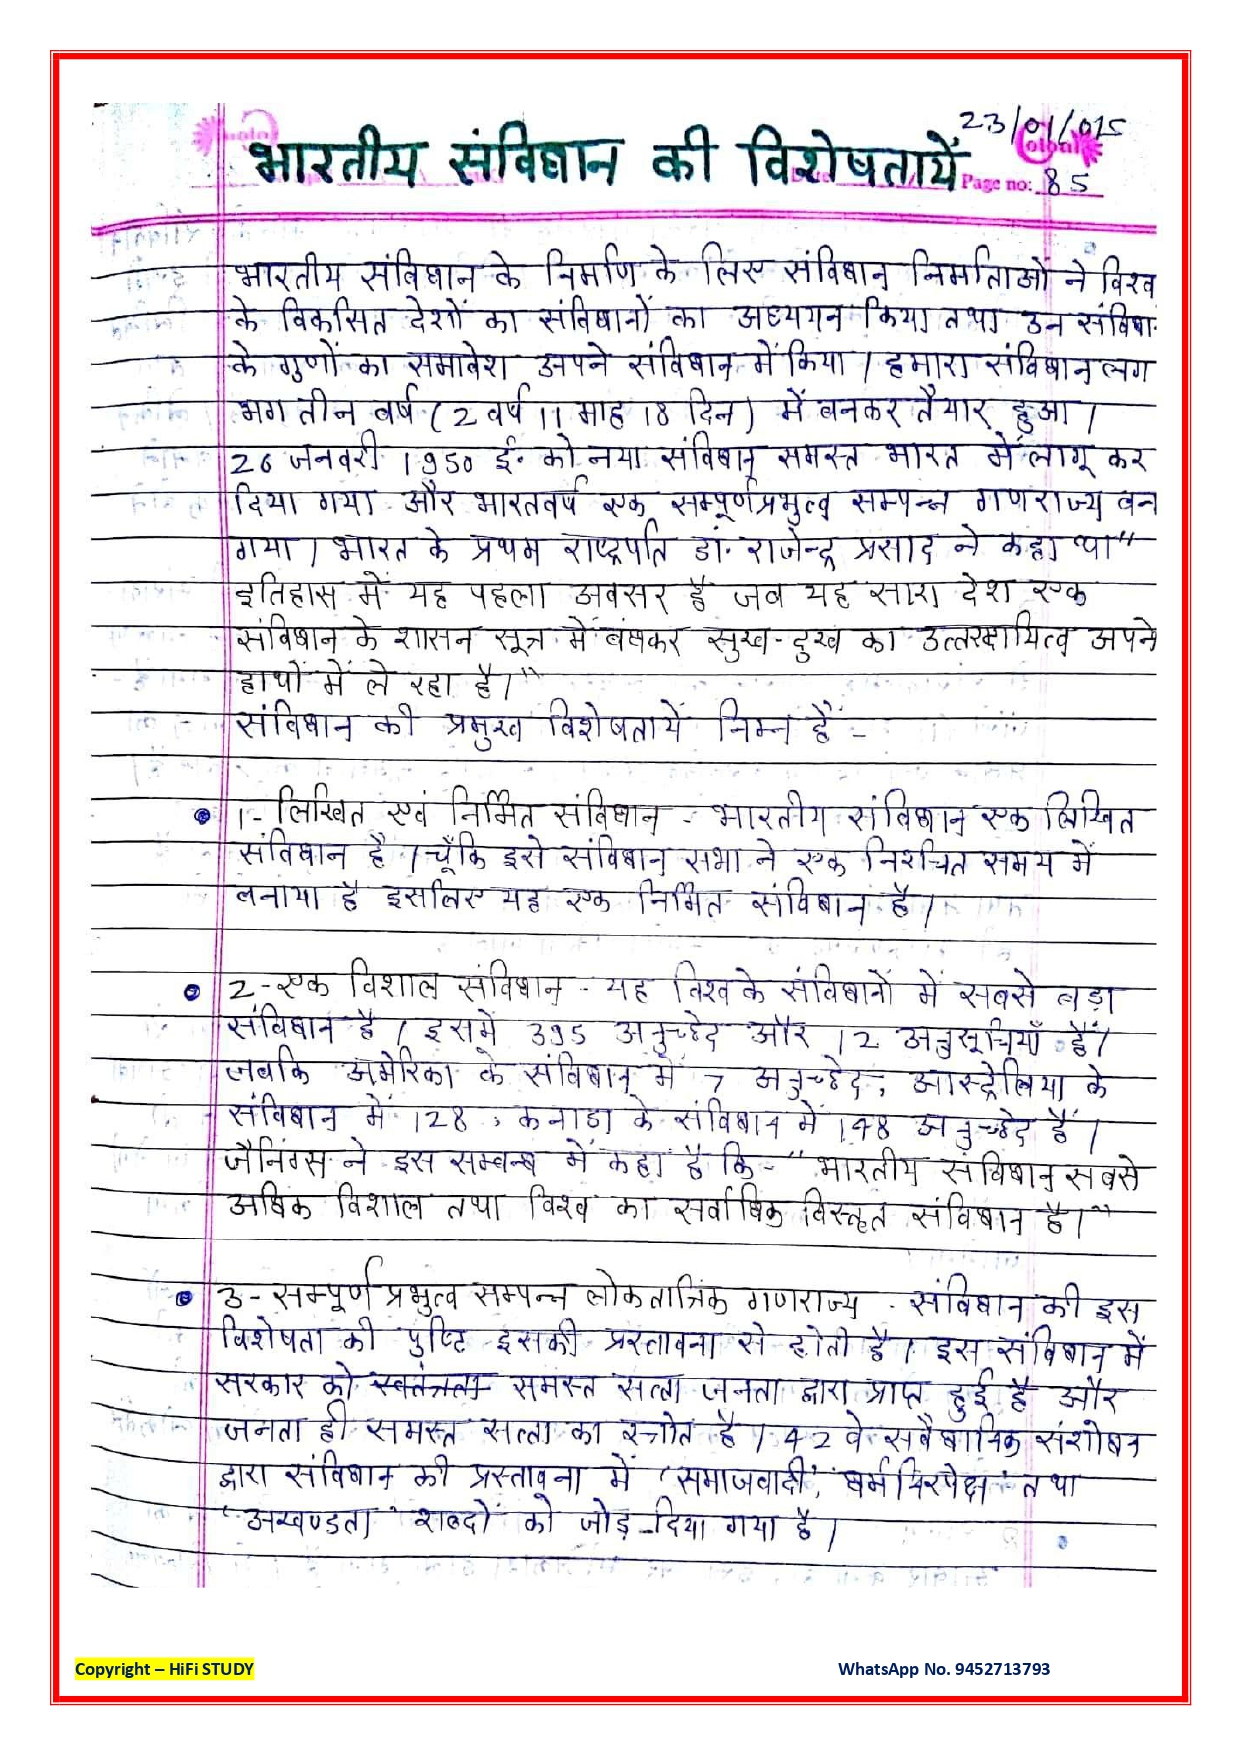 23/01/015
भारतीय संविधान की विशेषतायें
Page no: 85
भारतीय संविधान के निर्माण के लिए संविधान निर्माताओं ने विश्व
के विकसित देशों का संविधानों का अध्ययन किया तथा उन संविधा
के गुणों का समावेश अपने संविधान में किया। हमारा संविधान लग
भग तीन वर्ष (2 वर्ष 11 माह 18 दिन) में बनकर तैयार हुआ।
26 जनवरी 1950 ई. को नया संविधान समस्त भारत में लागू कर
दिया गया और भारतवर्ष एक सम्पूर्ण प्रभुत्व सम्पन्न गणराज्य बन
गया। भारत के प्रथम राष्ट्रपति डॉ. राजेन्द्र प्रसाद ने कहा था"
इतिहास में यह पहला अवसर है जब यह सारा देश एक
संविधान के शासन सूत्र में बंधकर सुख-दुख का उत्तरदायित्व अपने
हाथों में ले रहा है।"
संविधान की प्रमुख विशेषतायें निम्न हैं -
1- लिखित एवं निर्मित संविधान - भारतीय संविधान एक लिखित
संविधान है। चूँकि इसे संविधान सभा ने एक निश्चित समय में
बनाया है इसलिए यह एक निर्मित संविधान है।
2- एक विशाल संविधान - यह विश्व के संविधानों में सबसे बड़ा
संविधान है। इसमें 395 अनुच्छेद और 12 अनुसूचियाँ हैं।
जबकि अमेरिका के संविधान में 7 अनुच्छेद, आस्ट्रेलिया के
संविधान में 128, कनाडा के संविधान में 148 अनुच्छेद हैं।
जैनिंग्स ने इस सम्बन्ध में कहा है कि - "भारतीय संविधान सबसे
अधिक विशाल तथा विश्व का सर्वाधिक विस्तृत संविधान है।"
3- सम्पूर्ण प्रभुत्व सम्पन्न लोकतान्त्रिक गणराज्य - संविधान की इस
विशेषता की पुष्टि इसकी प्रस्तावना से होती है। इस संविधान में
सरकार को स्वतंत्रता समस्त सत्ता जनता द्वारा प्राप्त हुई है और
जनता ही समस्त सत्ता का स्त्रोत है। 42 वे सवैधानिक संशोधन
द्वारा संविधान की प्रस्तावना में 'समाजवादी', धर्मनिरपेक्ष' तथा
'अखण्डता' शब्दों को जोड़ दिया गया है।
Copyright – HiFi STUDY
WhatsApp No. 9452713793